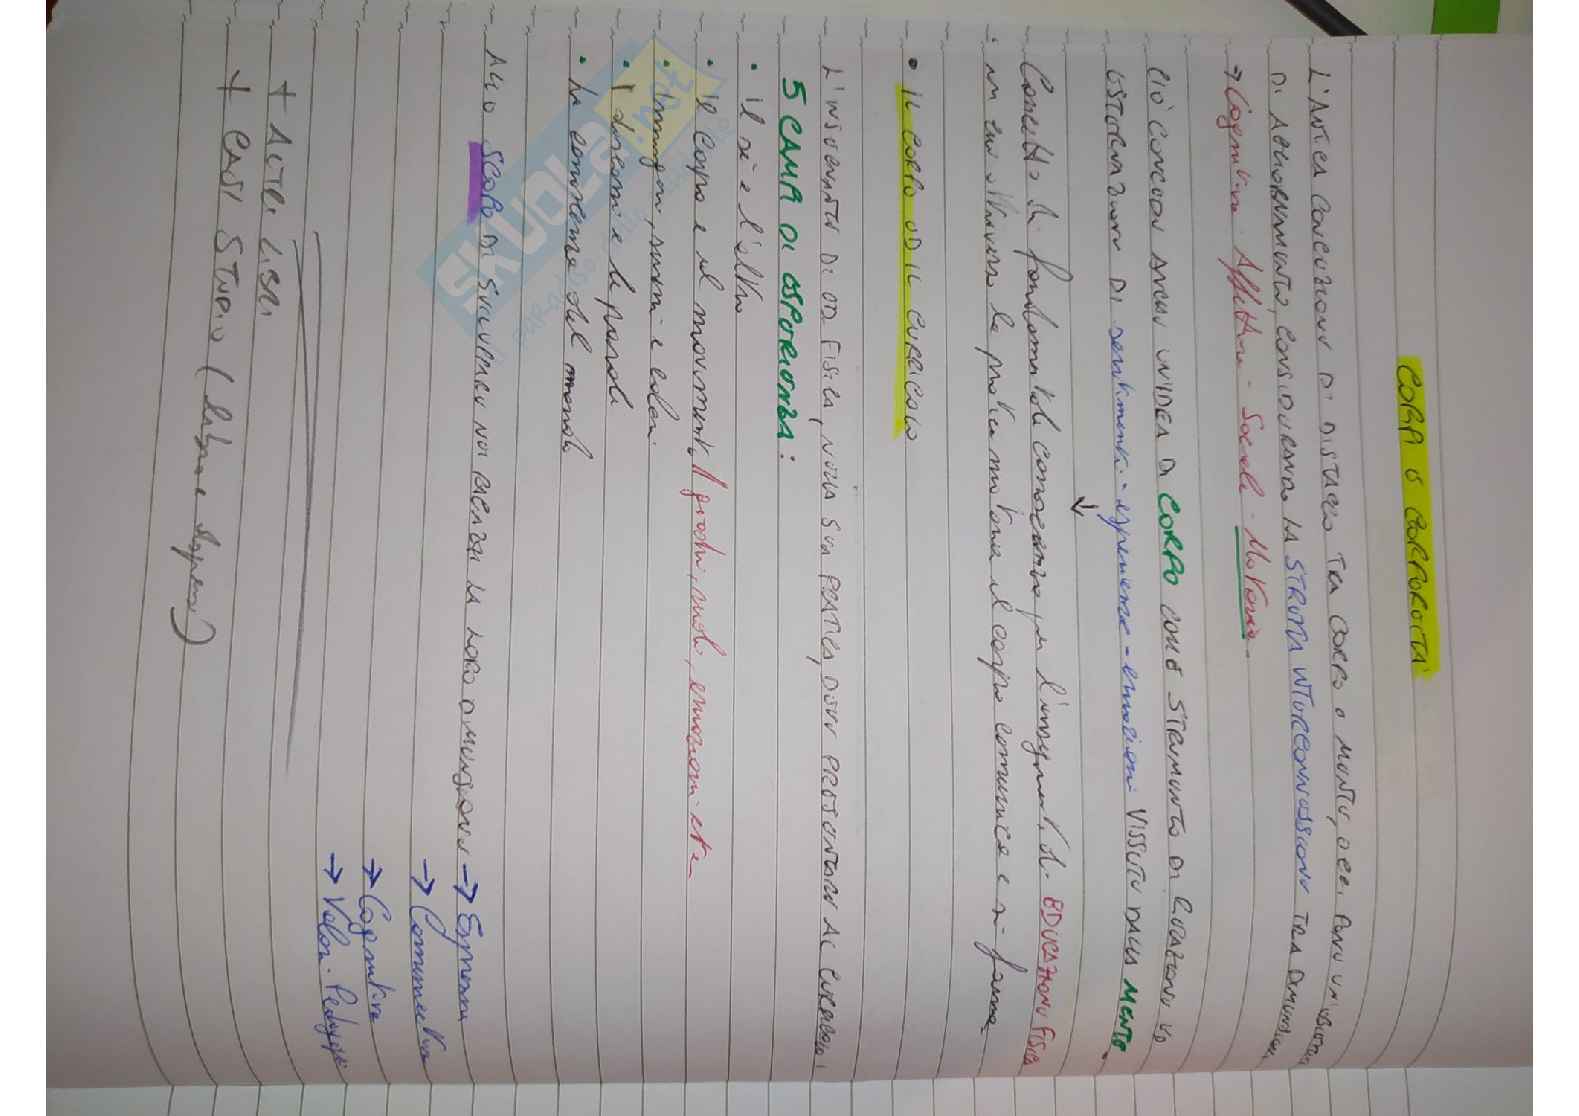 CORPI E CORPOREITÀ
L'ANTICA CONCEZIONE DI DISTACCO TRA CORPO E MENTE, OGGI PONE UN'
DI AGGIORNAMENTO, CONSIDERANDO LA STRETTA INTERCONNESSIONE TRA DIMENSIONI
→ Cognitiva - Affettiva - Sociale - Motoria.
CIÒ CONCEDE AVERE UN'IDEA DI CORPO COME STRUMENTO DI RICEZIONE ED
ESTERNAZIONE DI sentimenti - esperienze - emozioni VISSUTE DALLA MENTE.
↓
Concetto di fondamentale conoscenza per l'insegnante di EDUCAZIONE FISICA
in cui attraverso la pratica motoria il corpo comunica e si forma
• IL CORPO ED IL CURRICOLO
L'INSEGNANTE DI ED. FISICA, NELLA SUA PRATICA, DEVE PRESENTARE AL CURRICOLO I
5 CAMPI DI ESPERIENZA:
• Il sé e l'altro
• Il corpo e il movimento // giochi, ruoli, emozioni etc
• Immagini, suoni e colori
• I discorsi e le parole
• La conoscenza del mondo
ALLO SCOPO DI SVILUPPARE NEI RAGAZZI LA LORO DIMENSIONE → Espressiva
→ Comunicativa
→ Cognitiva
→ Valori Pedagogici
+ ALTRI LIBRI
+ CASI STUDIO (